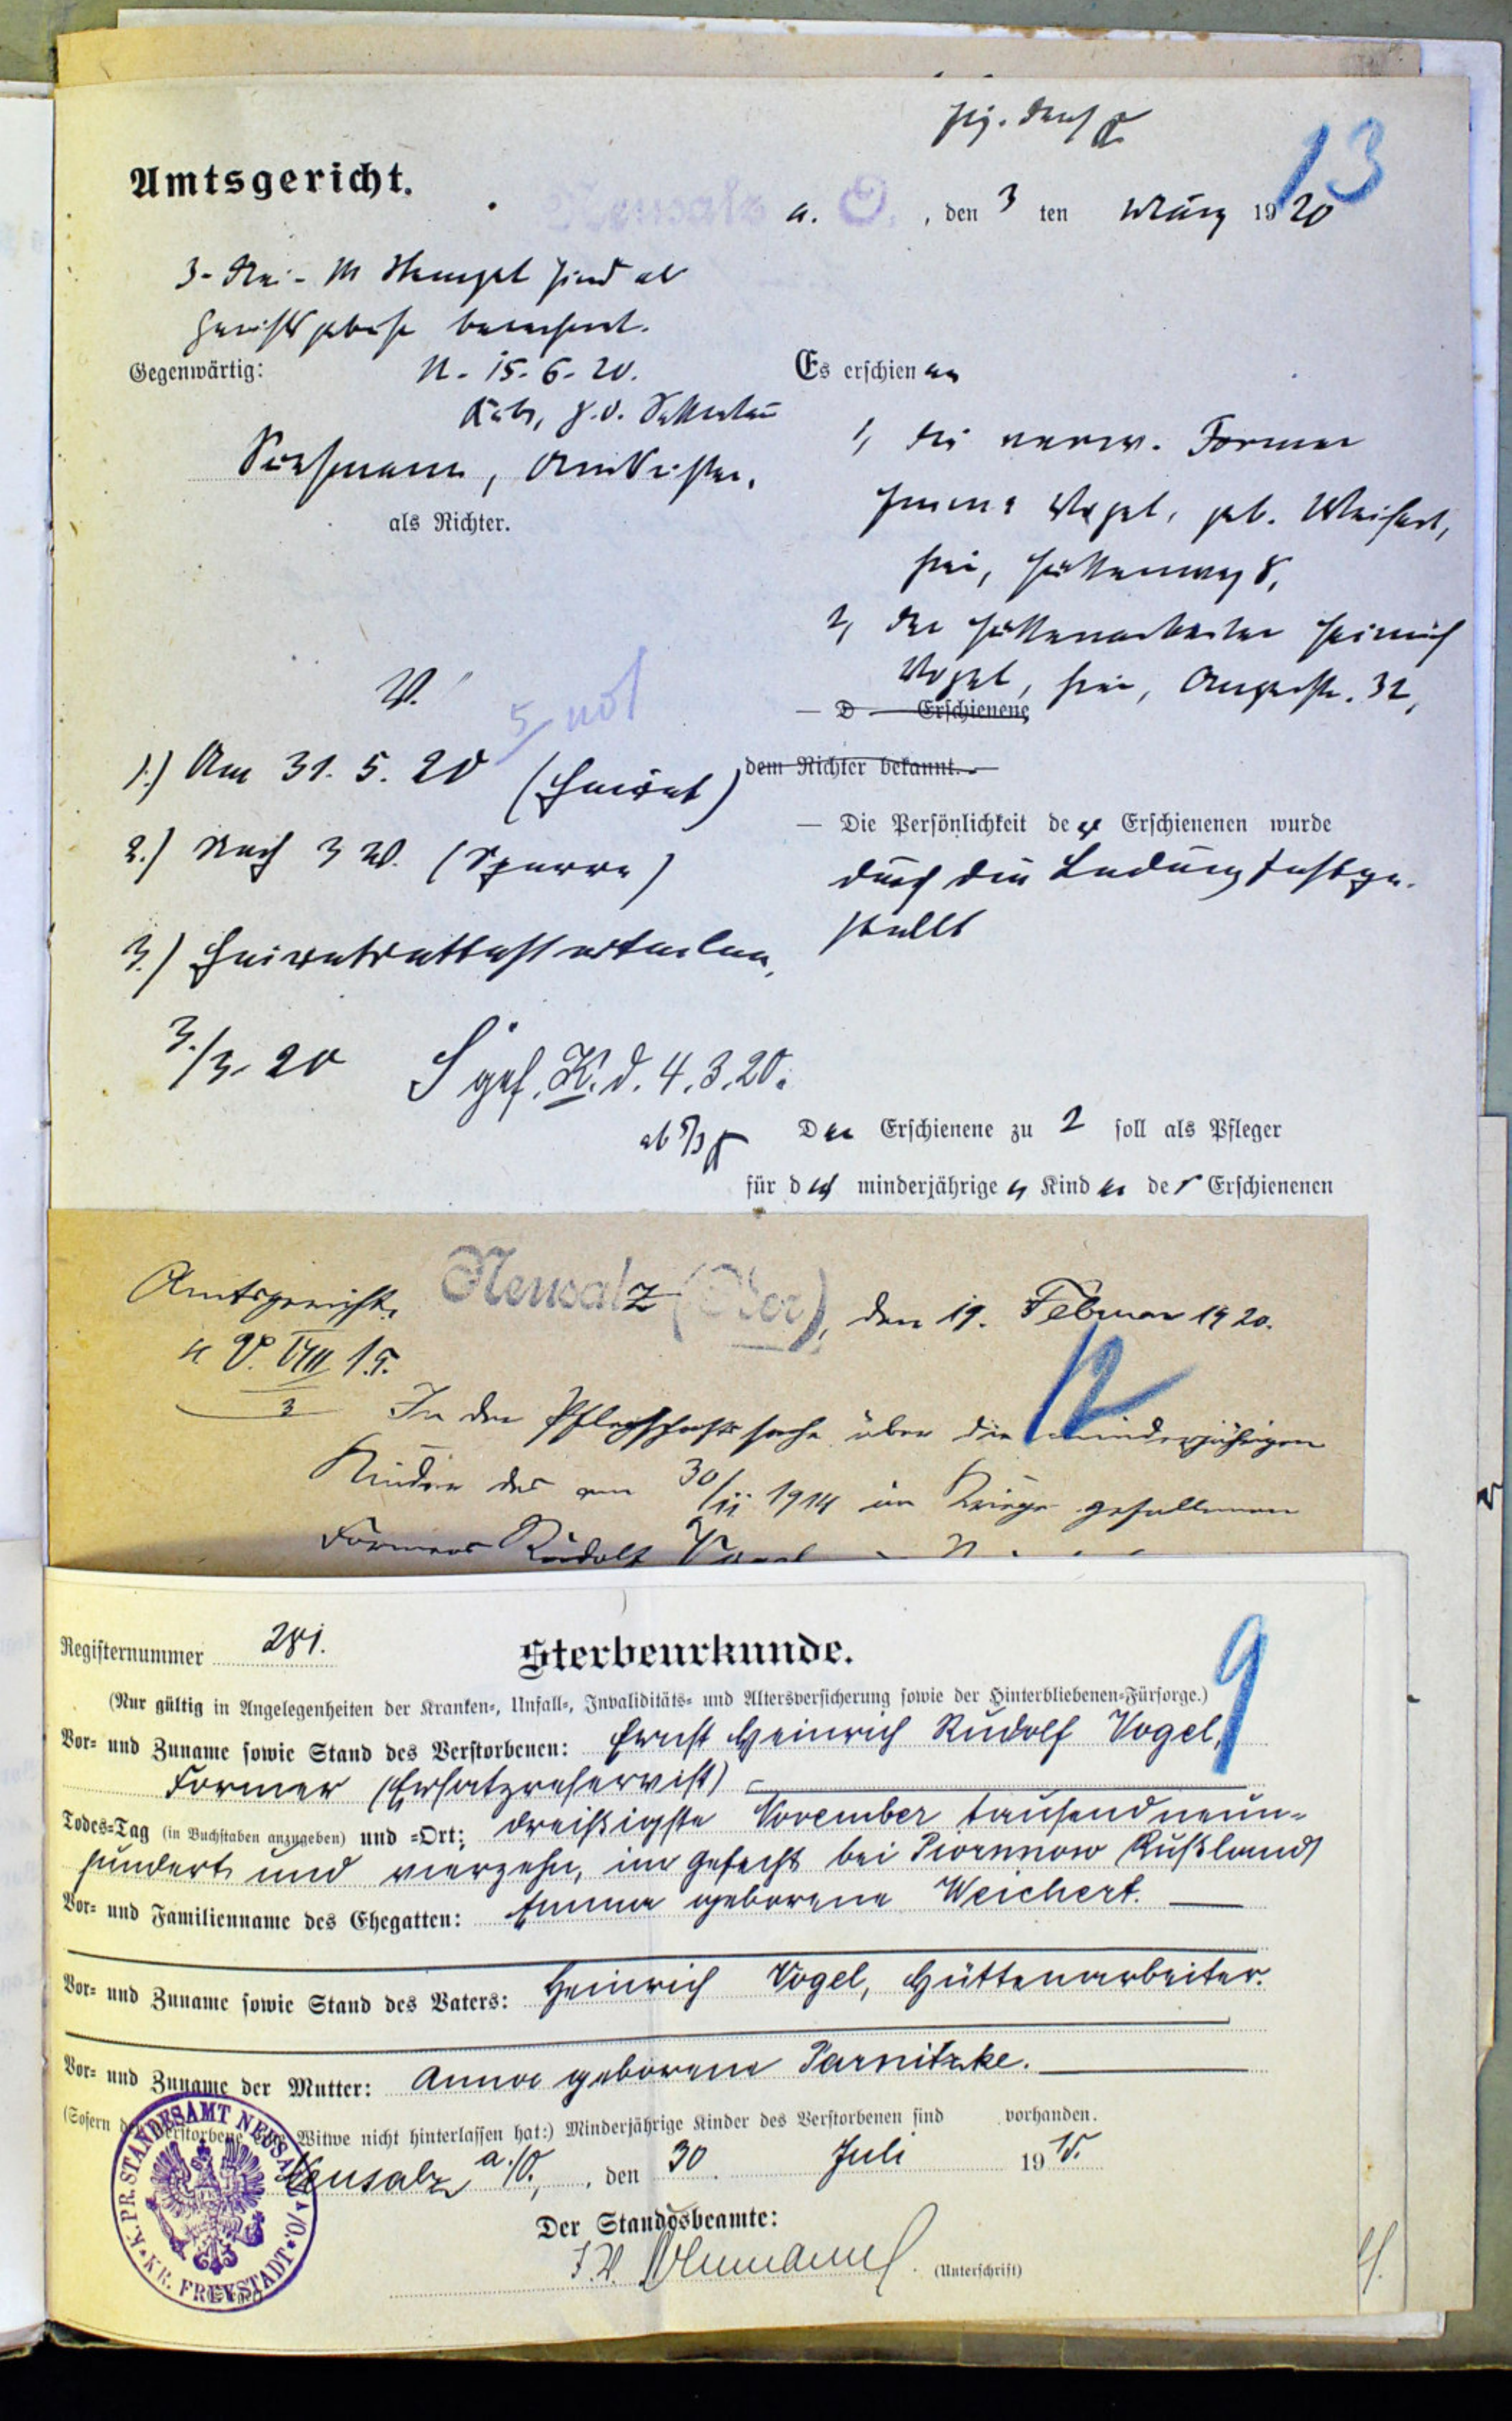 13
Amtsgericht.
Neusalz a. O., den 3 ten März 1920
3 - Drei - M Stempel sind als
berechnet.
Gegenwärtig:
N. 15. 6. 20.
Amtsrichter,
als Richter.
Es erschienen
1, die verw. Former
Emma Vogel, geb. Weichert,
hier, Hüttenweg 8,
2, der Hüttenarbeiter Heinrich
Vogel, hier, Augustastr. 32,
— D — Erschienene
dem Richter bekannt. —
— Die Persönlichkeit der Erschienenen wurde
durch die Ladung festge-
stellt
V.
5, not
1.) Am 31. 5. 20 (Heirat)
2.) Nach 3 W. (Sperre)
3.) Heiratsattest erteilen,
3./3. 20
gef. K. d. 4. 3. 20.
ab 5/3
Der Erschienene zu 2 soll als Pfleger
für die minderjährigen Kinder der Erschienenen
Amtsgericht. Neusalz (Oder), den 19. Februar 1920.
12
V. VIII 15.
3
In der Pflegschaftssache über die minderjährigen
Kinder des am 30/11 1914 im Kriege gefallenen
Formers Rudolf Vogel
Registernummer 281.
Sterbeurkunde.
9
(Nur gültig in Angelegenheiten der Kranken-, Unfall-, Invaliditäts- und Altersversicherung sowie der Hinterbliebenen-Fürsorge.)
Vor- und Zuname sowie Stand des Verstorbenen: Ernst Heinrich Rudolf Vogel,
Former (Ersatzreservist)
Todes-Tag (in Buchstaben anzugeben) und -Ort: dreißigste November tausendneun-
hundert und vierzehn, im Gefecht bei Piorunow Rußland
Vor- und Familienname des Ehegatten: Emma geborene Weichert.
Vor- und Zuname sowie Stand des Vaters: Heinrich Vogel, Hüttenarbeiter.
Vor- und Zuname der Mutter: Anna geborene Parnitzke.
(Sofern der Verstorbene eine Witwe nicht hinterlassen hat:) Minderjährige Kinder des Verstorbenen sind vorhanden.
Neusalz a./O., den 30. Juli 1915.
Der Standesbeamte:
J. V.
(Unterschrift)
K. PR. STANDESAMT NEUSALZ A/O. KR. FREYSTADT